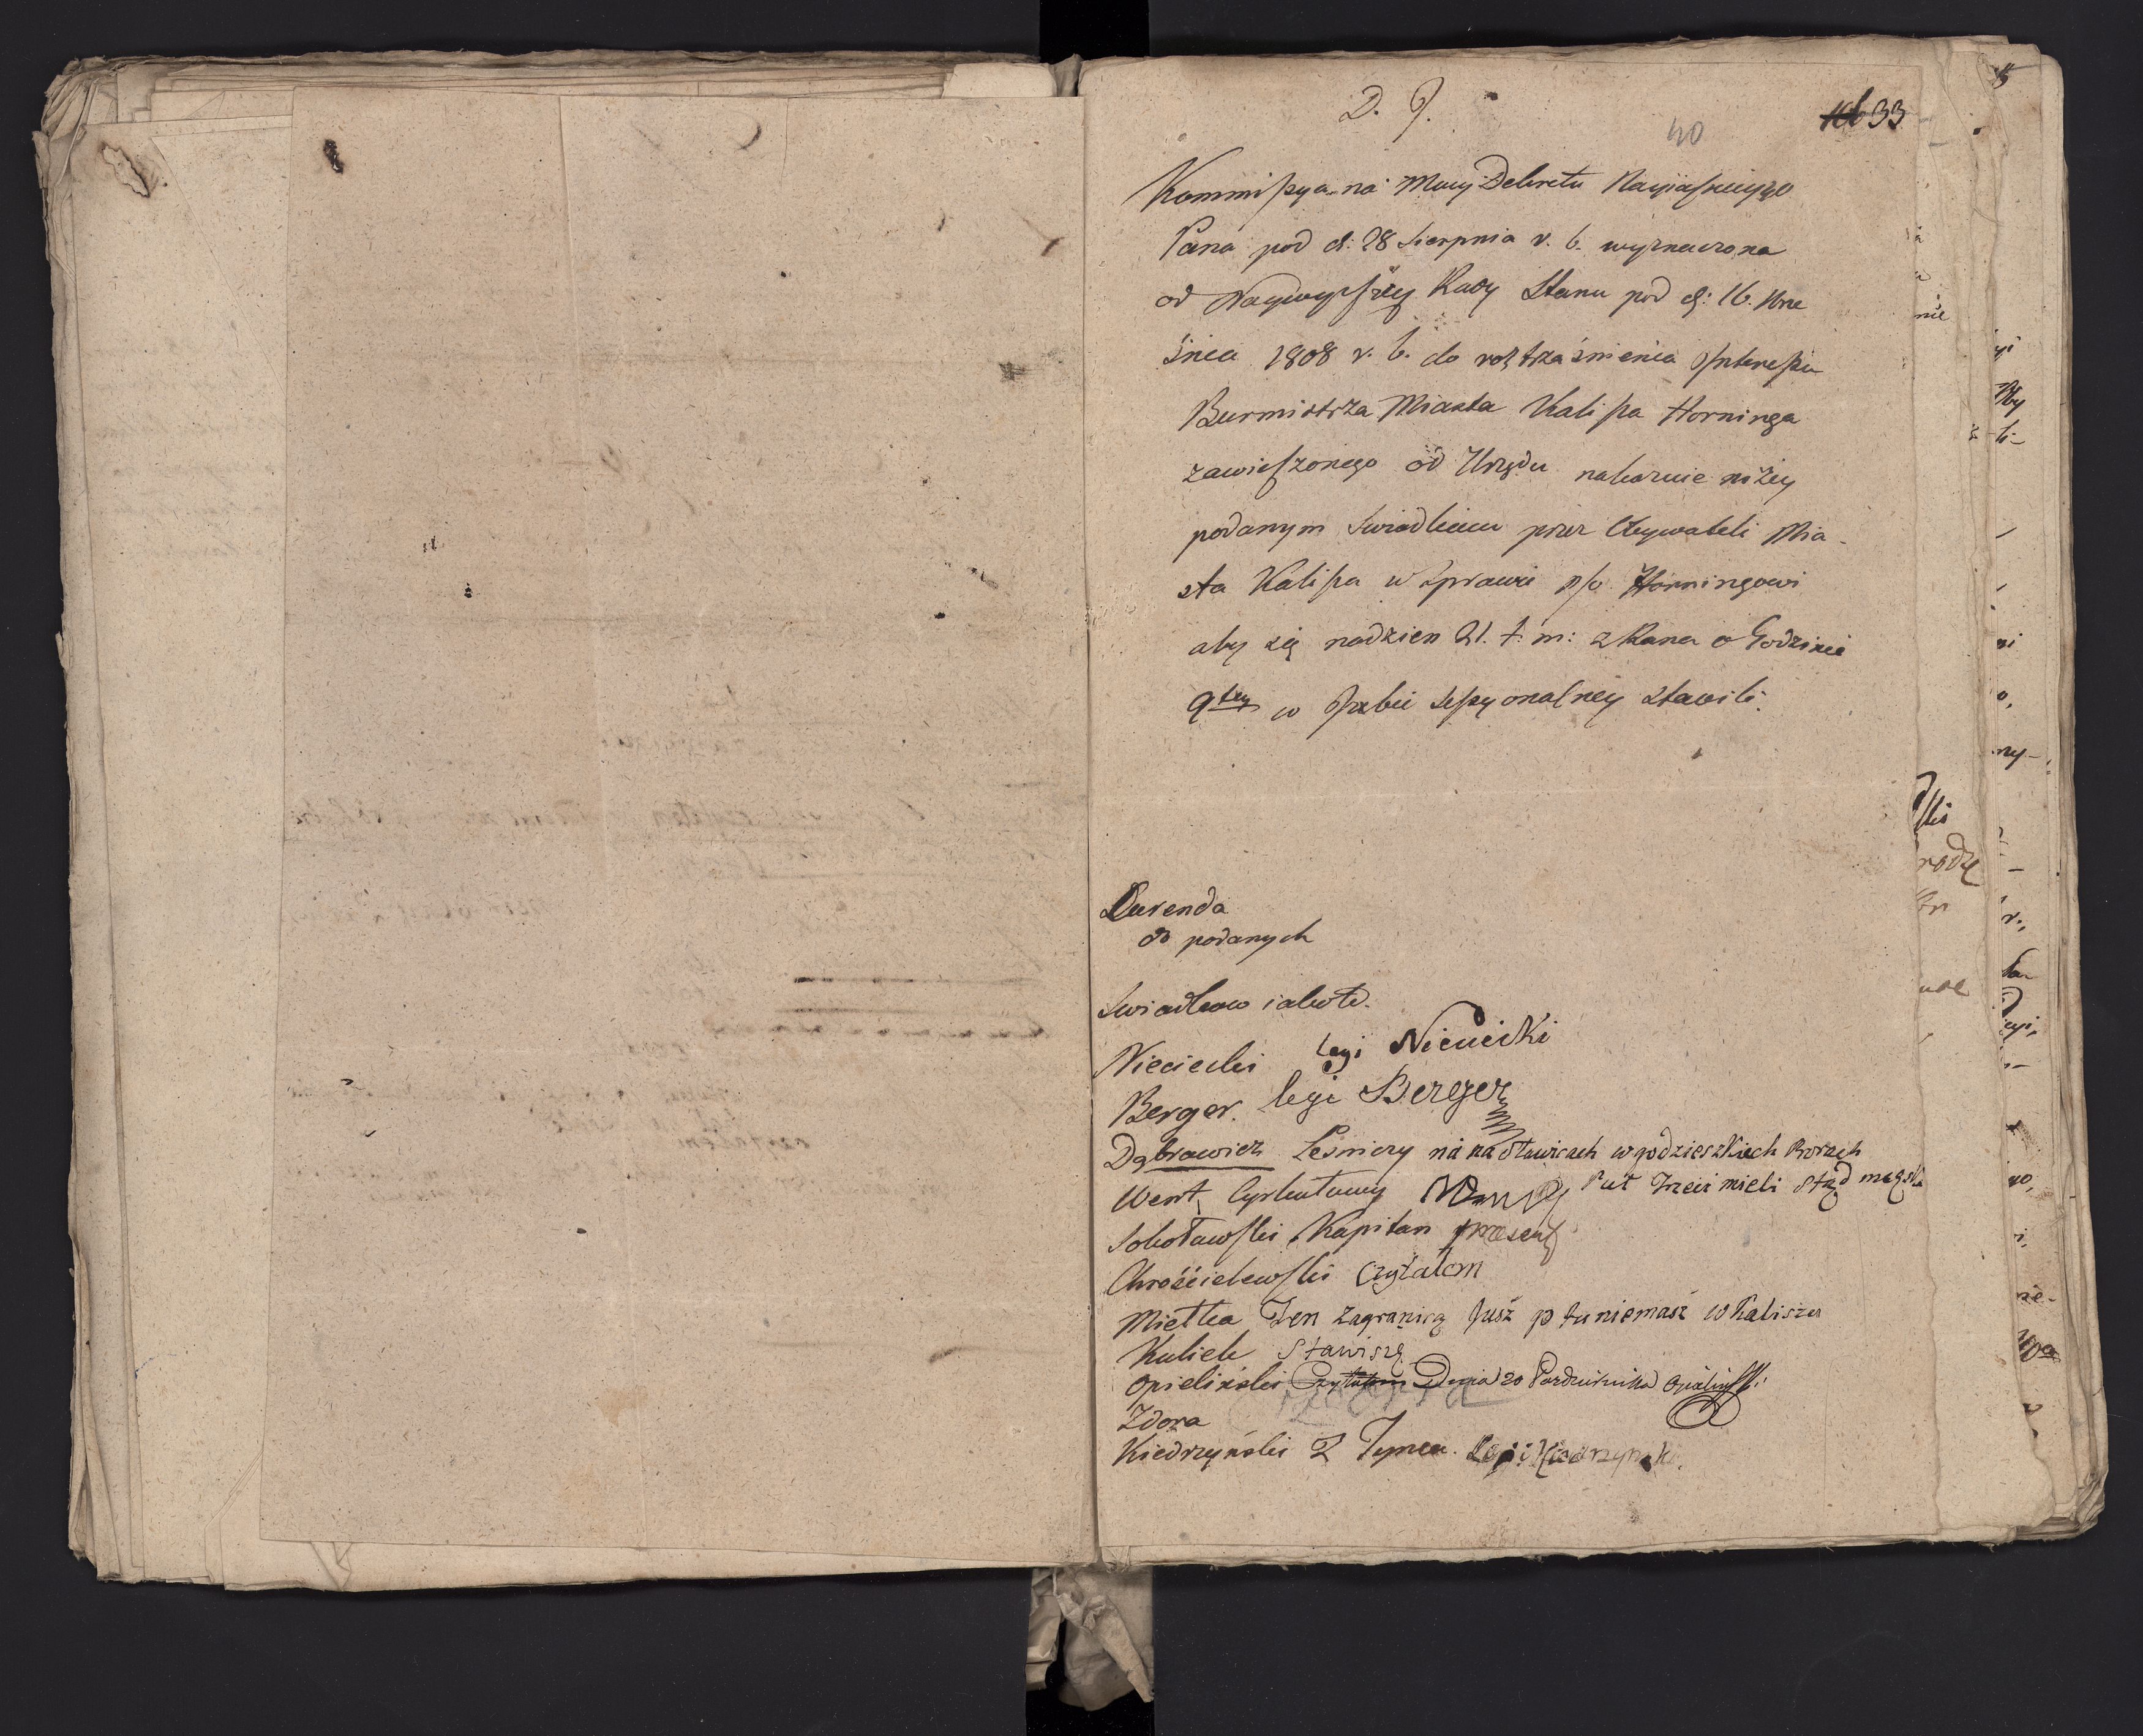 D. J.
40
33
Kommissya na Mocy Dekretu Nayiaśnieyszego
Pana pod d: 28 Sierpnia r. b. wyznaczona
od Naywyższey Rady Stanu pod d: 16. Wrze
śnia 1808 r. b. do roztrząśnienia Interessu
Burmistrza Miasta Kalisza Horninga
zawieszonego od Urzędu nakazuie niżey
podanym Swiadkom przez Obywateli Mia-
sta Kalisza w Sprawie p/o Horningowi
aby się nadzien 21. t. m: z Rana o Godzinie
9tey w Izbie Sessyonalney stawili.
Kurenda
do podanych
Swiadkow iakoto.
Nieciecki legi Nieciecki
Berger. legi Berger
Dąbrowicz Lesniczy na nadstawicach w godzieszkich Borach
Went, Cyrkułowy Put Trzeci mieli stąd
Sokołowski Kapitan praesent
Chrościelewski Czytałem
Mietka Ten zagranicą Jusz p tu niemasz w Kaliszu
Kubiek Stawi się
Opieliński Czytałem Dnia 20 Pazdziernika Opieliński
Zdora
Kiedrzyński Z Tynca. Legi Kiedrzynski.